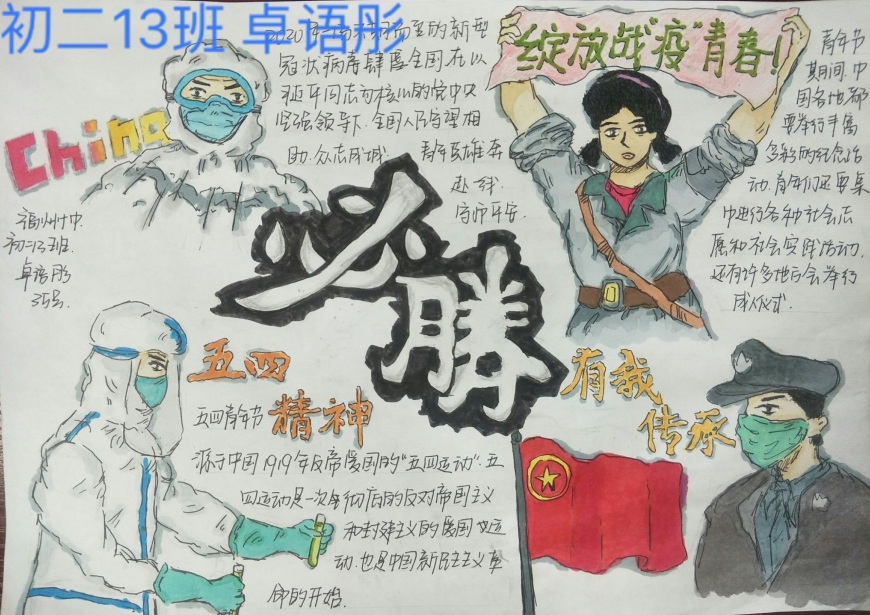 初二13班 卓语彤
2020年
的新型
冠状病毒肆虐全国.在以
同志为核心的党中央
坚强领导下.全国人民守望相
助.众志成城.
青年英雄奔
赴一线.
守护平安.
China
绽放战"疫"青春!
青年节
期间.中
国各地都
要举行丰富
多彩的纪念活
动.青年们还要集
中进行各种社会志
愿和社会实践活动.
还有许多地方会举行
成人仪式.
福州十中.
初二13班.
卓语彤
35号.
必胜
五四
精神
五四青年节
源于中国1919年反帝爱国的"五四运动".五
四运动是一次彻底的反对帝国主义
和封建主义的爱国运
动.也是中国新民主主义革
命的开始.
有我
传承